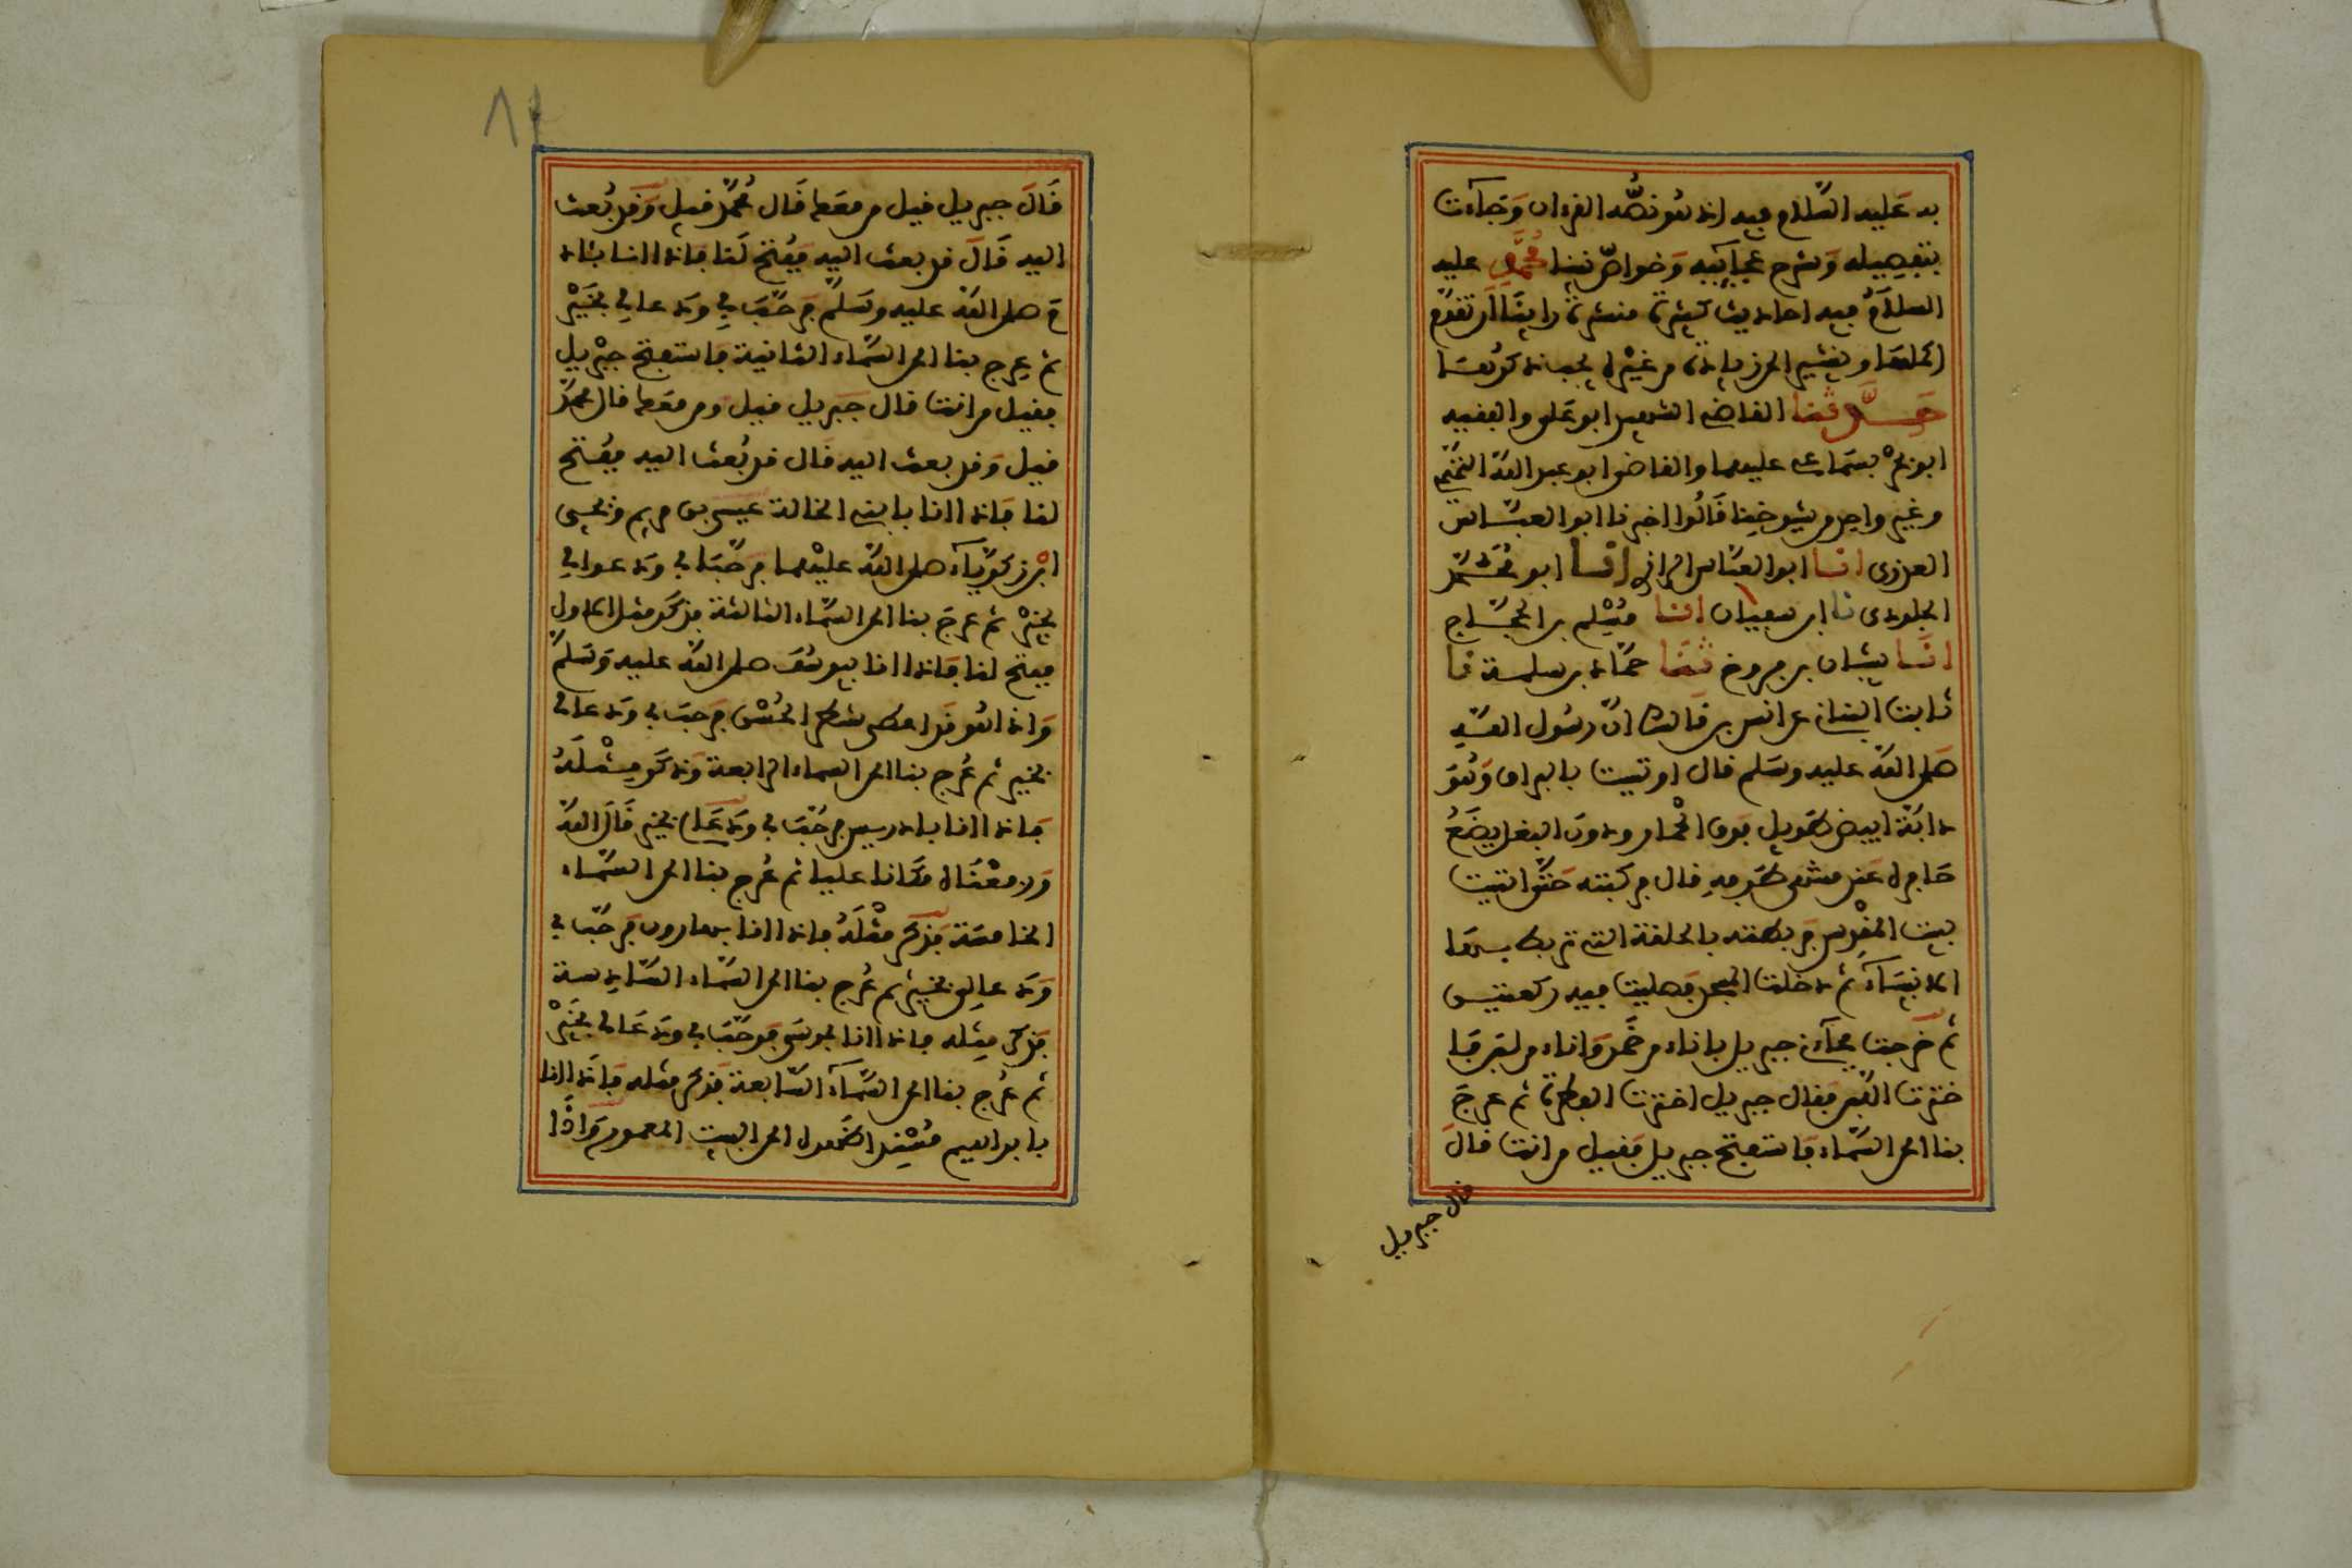 به عليه السلام فيه اذ هو نصه القرءان وجاءت
بتفصيله وشرح عجايبه وخواص نبينا محمد عليه
السلام فيه احاديث كثيرة منتشرة راينا ان نقدم
اكملها ونشير الى زيادة من غيره يجب ذكرها
حدثنا القاضي الشهيد ابو علي والفقيه
ابو بحر بسماعي عليهما والقاضي ابو عبد الله التميمي
وغير واحد من شيوخنا قالوا اخبرنا ابو العباس
العذري انا ابو العباس الرازي انا ابو محمد
الجلودي نا ابن سفيان انا مسلم بن الحجاج
انا شيبان بن فروخ ثنا حماد بن سلمة نا
ثابت البناني عن انس بن مالك ان رسول الله
صلى الله عليه وسلم قال اوتيت بالبراق وهو
دابة ابيض طويل فوق الحمار ودون البغل يضع
حافره عند منتهى طرفه قال فركبته حتى اتيت
بيت المقدس فربطته بالحلقة التي تربط بها
الانبياء ثم دخلت المسجد فصليت فيه ركعتين
ثم خرجت فجاءني جبريل باناء من خمر واناء من لبن فا
خترت اللبن فقال جبريل اخترت الفطرة ثم عرج
بنا الى السماء فاستفتح جبريل فقيل من انت قال
قال جبريل
قال جبريل قيل من معك قال محمد قيل وقد بعث
اليه قال قد بعث اليه ففتح لنا فاذا انا بئاد
م صلى الله عليه وسلم فرحب بي ودعا لي بخير
ثم عرج بنا الى السماء الثانية فاستفتح جبريل
فقيل من انت قال جبريل قيل ومن معك قال محمد
قيل وقد بعث اليه قال قد بعث اليه ففتح
لنا فاذا انا بابني الخالة عيسى بن مريم ويحيى
ابن زكرياء صلى الله عليهما فرحبا بي ودعوا لي
بخير ثم عرج بنا الى السماء الثالثة فذكر مثل الاول
ففتح لنا فاذا انا بيوسف صلى الله عليه وسلم
واذا هو قد اعطى شطر الحسن فرحب بي ودعا لي
بخير ثم عرج بنا الى السماء الرابعة وذكر مثله
فاذا انا بادريس فرحب بي ودعا لي بخير قال الله
ورفعناه مكانا عليا ثم عرج بنا الى السماء
الخامسة فذكر مثله فاذا انا بهارون فرحب بي
ودعا لي بخير ثم عرج بنا الى السماء السادسة
فذكر مثله فاذا انا بموسى فرحب بي ودعا لي بخير
ثم عرج بنا الى السماء السابعة فذكر مثله فاذا انا
بابراهيم مسندا ظهره الى البيت المعمور واذا